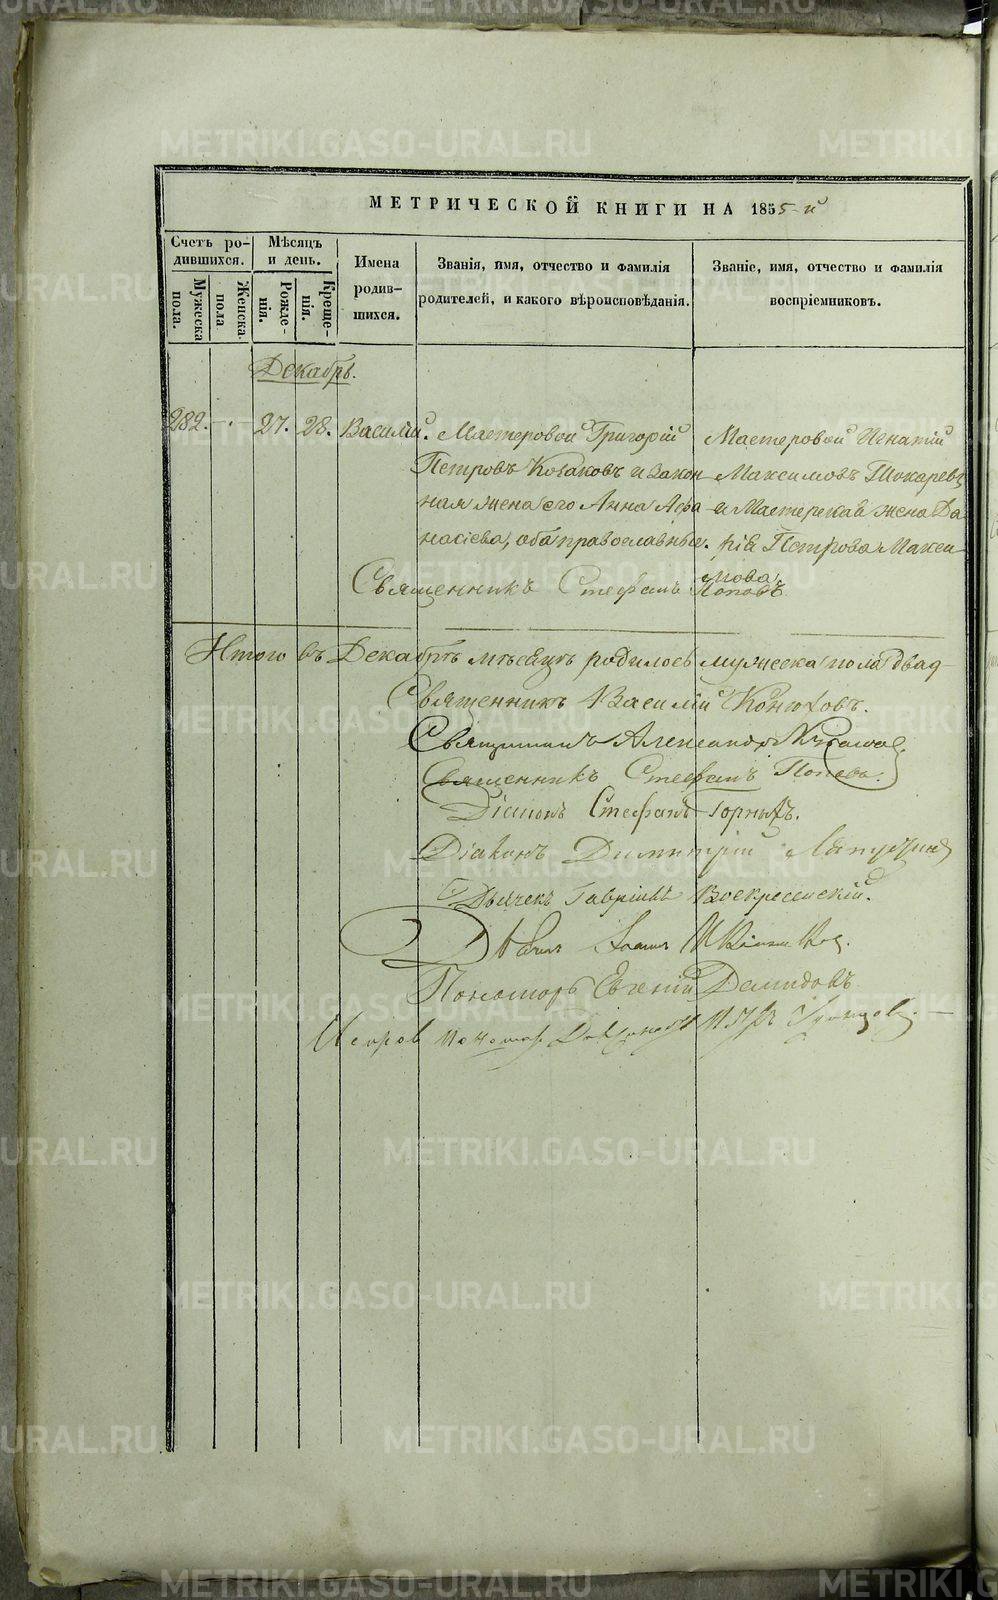 МЕТРИЧЕСКОЙ КНИГИ НА 1855-й
Счетъ родившихся.
Мужеска пола.
Женска пола
Мѣсяцъ и день.
Рожденія.
Крещенія.
Имена родившихся.
Званія, имя, отчество и фамилія
родителей, и какого вѣроисповѣданія.
Званіе, имя, отчество и фамилія
воспріемниковъ.
Декабрь.
282. - 27. 28. Василій.
Мастеровой Григорій
Петровъ Козаковъ и закон
ная жена его Анна Афа
насіева, оба православные.
Мастеровой Игнатій
Максимовъ Токаревъ
и Мастерская жена Да
рія Петрова Макси
мова
Священникъ Стефанъ Поповъ
Итого въ Декабрѣ мѣсяцѣ родилось мужеска пола двад-
Священникъ Василій Конюховъ.
Священникъ Александръ
Священникъ Стефанъ Поповъ.
Діаконъ Стефанъ Горныхъ.
Діаконъ Димитрій
Дьячекъ Гавріилъ Воскресенскій.
Пономарь Евгеній Демидовъ
METRIKI.GASO-URAL.RU